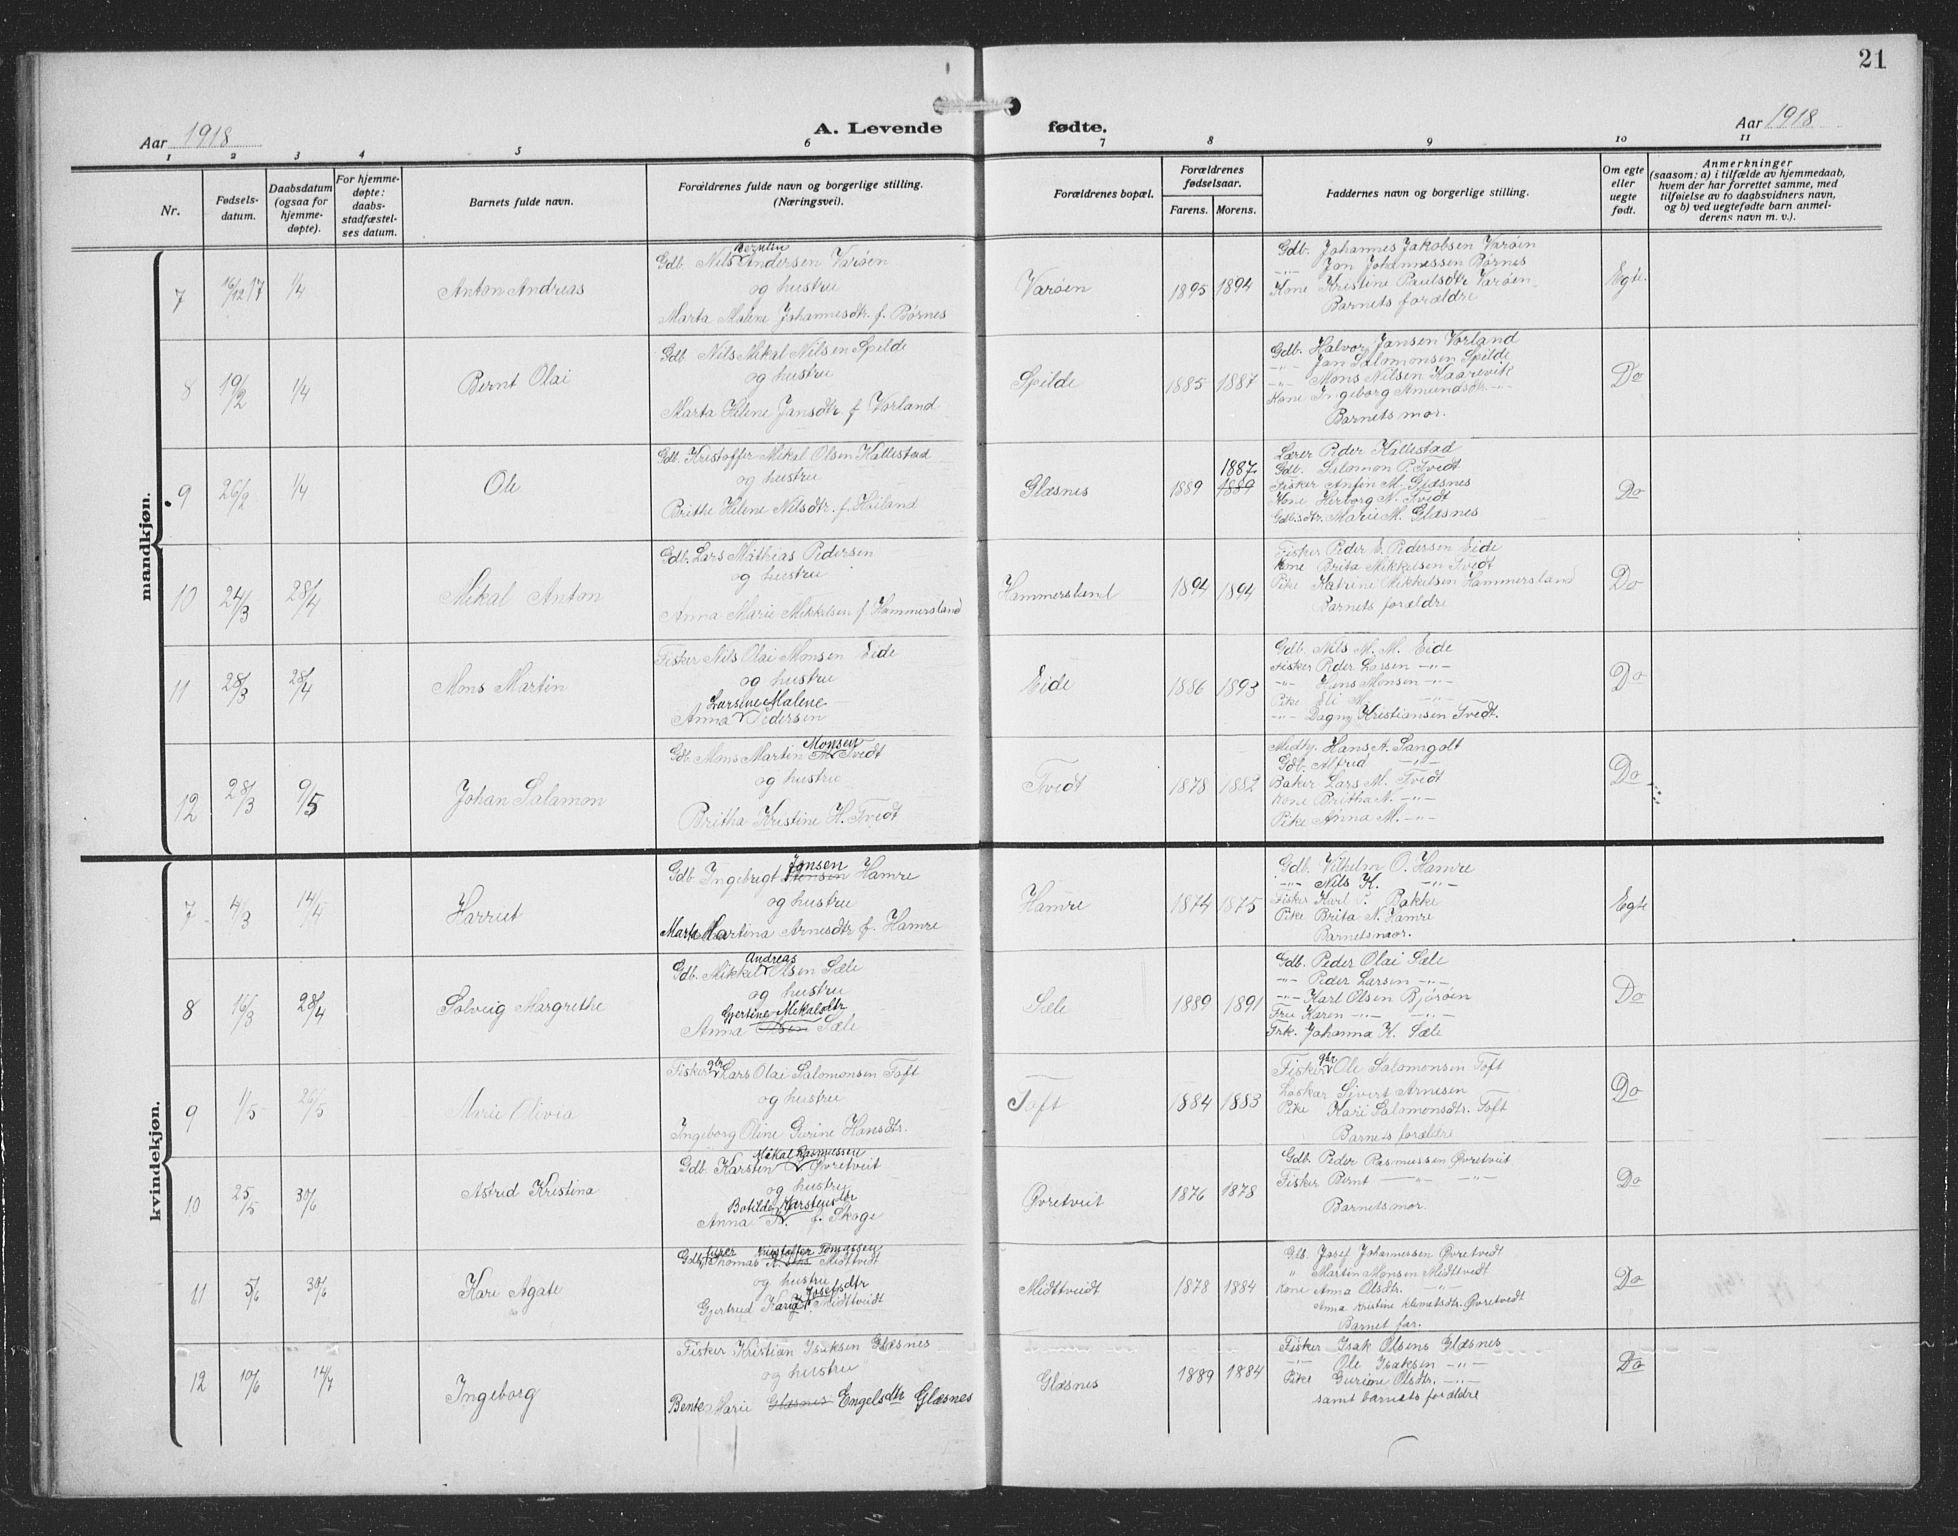 21
Aar 1918
A. Levende fødte.
Aar 1918
1 2 3 4 5 6 7 8 9 10 11
Nr.
Fødsels-
datum.
Daabsdatum
(ogsaa for
hjemme-
døpte).
For hjemme-
døpte:
daabs-
stadfæstel-
ses datum.
Barnets fulde navn.
Forældrenes fulde navn og borgerlige stilling.
(Næringsvei).
Forældrenes bopæl.
Forældrenes
fødselsaar.
Farens. Morens.
Faddernes navn og borgerlige stilling.
Om egte
eller
uegte
født.
Anmerkninger
(saasom: a) i tilfælde av hjemmedaab,
hvem der har forrettet samme, med
tilføielse av to daabsvidners navn,
og b) ved uegtefødte barn anmel-
derens navn m. v.).
mandkjøn.
7 16/12 17 1/4 Anton Andreas
Berntin
Gdb. Nils Andersen Varøen
og hustru
Marta Malene Johannesdtr. f. Børnes
Varøen 1895 1894
Gdb. Johannes Jakobsen Varøen
-"- Jon Johannessen Børnes
Kone Kristine Paulsdtr Varøen
Barnets forældre
Egte
8 19/2 1/4 Bernt Olai
Gdb. Nils Mikal Nilsen Spilde
og hustru
Marta Helene Jansdtr f Vorland
Spilde 1885 1887
Gdb. Halvor Jansen Vorland
-"- Jan Salomonsen Spilde
-"- Mons Nilsen Kaarevik
Kone Ingeborg Amundsdtr -"-
Barnets mor.
Do
9 26/2 1/4 Ole
Gdb. Kristoffer Mikal Olsen Kallestad
og hustru
Brithe Helene Nilsdtr. f. Høiland
Glæsnes 1889 1887 1889
Lærer Peder Kallestad
Gdb. Salomon P. Tvedt
Fisker Anfin M. Glæsnes
Kone Herborg N. Tvedt
Gdbsdtr. Marie M. Glæsnes
Do
10 24/3 28/4 Mikal Anton
Gdb. Lars Mathias Pedersen
og hustru
Anna Marie Mikkelsen f Hammersland
Hammersland 1894 1894
Fisker Peder E. Pedersen Eide
Kone Brita Mikkelsen Tvedt
Pike Katrine Mikkelsen Hammersland
Barnets forældre
Do
11 28/3 28/4 Mons Martin
Fisker Nils Olai Monsen Eide
og hustru
Larsine Malene
Anna Pedersen
Eide 1886 1893
Gdb. Nils M. M. Eide
Fisker Peder Larsen -"-
-"- Hans Monsen -"-
Pike Eli M. -"-
-"- Dagny Kristiansen Tvedt.
Do
12 28/3 9/5 Johan Salamon
Monsen
Gdb. Mons Martin Tvedt
og hustru
Britha Kristine H. Tvedt
Tvedt 1878 1882
Hans A. Sangolt
Gdb. Alfred -"-
Baker Lars M. Tvedt
Kone Britha A. -"-
Pike Anna M. -"-
Do
kvindekjøn.
7 4/3 14/4 Harriet
Jonsen
Gdb. Ingebrigt Hamre
og hustru
Marta Martina Arnesdtr f. Hamre
Hamre 1874 1875
Gdb. Vilhelm O. Hamre
-"- Nils K. -"-
Fisker Karl Bakke
Pike Brita N. Hamre
Barnets mor.
Egte
8 16/3 28/4 Solveig Margrethe
Andreas
Gdb. Mikkal Olsen Sæle
og hustru
Gjertine Mikalsdtr
Anna Olsen Sæle
Sæle 1889 1891
Gdb. Peder Olai Sæle
-"- Peder Larsen -"-
-"- Karl Olsen Bjørøen
Fru Karen -"- -"-
Frk. Johanna K. Sæle
Do
9 1/5 26/5 Marie Olivia
Fisker Lars Olai Salomonsen Toft
og hustru
Ingeborg Oline Gurine Hansdtr.
Toft 1884 1883
Fisker Ole Salomonsen Toft
Laskar Sivert Arnesen
Pike Kari Salomonsdtr. Toft
Barnets forældre
Do
10 25/5 30/6 Astrid Kristina
Mikal Rasmussen
Gdb. Karsten Øvretveit
og hustru
Botilde Karstensdtr
Anna f. Skoge
Øvretveit 1876 1878
Gdb. Peder Rasmussen Øvretveit
Fisker Bernt -"- -"-
Barnets mor.
Do
11 5/6 30/6 Kari Agate
Kristoffer Tomassen
Gdb. Thomas K. Midttvedt
og hustru
Josefsdtr
Gjertrud Karia Midttveidt
Midttveidt 1878 1884
Gdb. Josef Johannessen Øvretvedt
" Martin Monsen Midttvedt
Kone Anna Olsdtr. -"-
Anna Kristine Klemetsdtr. Øvretvedt
Barnet far.
Do
12 10/6 14/7 Ingeborg
Fisker Kristian Isaksen Glæsnes
og hustru
Bente Marie Glæsnes Engelsdtr Glæsnes
Glæsnes 1889 1884
Fisker Isak Olsens Glæsnes
-"- Ole Isaksen -"-
Pike Gurine Olsdtr. -"-
samt barnets forældre
Do